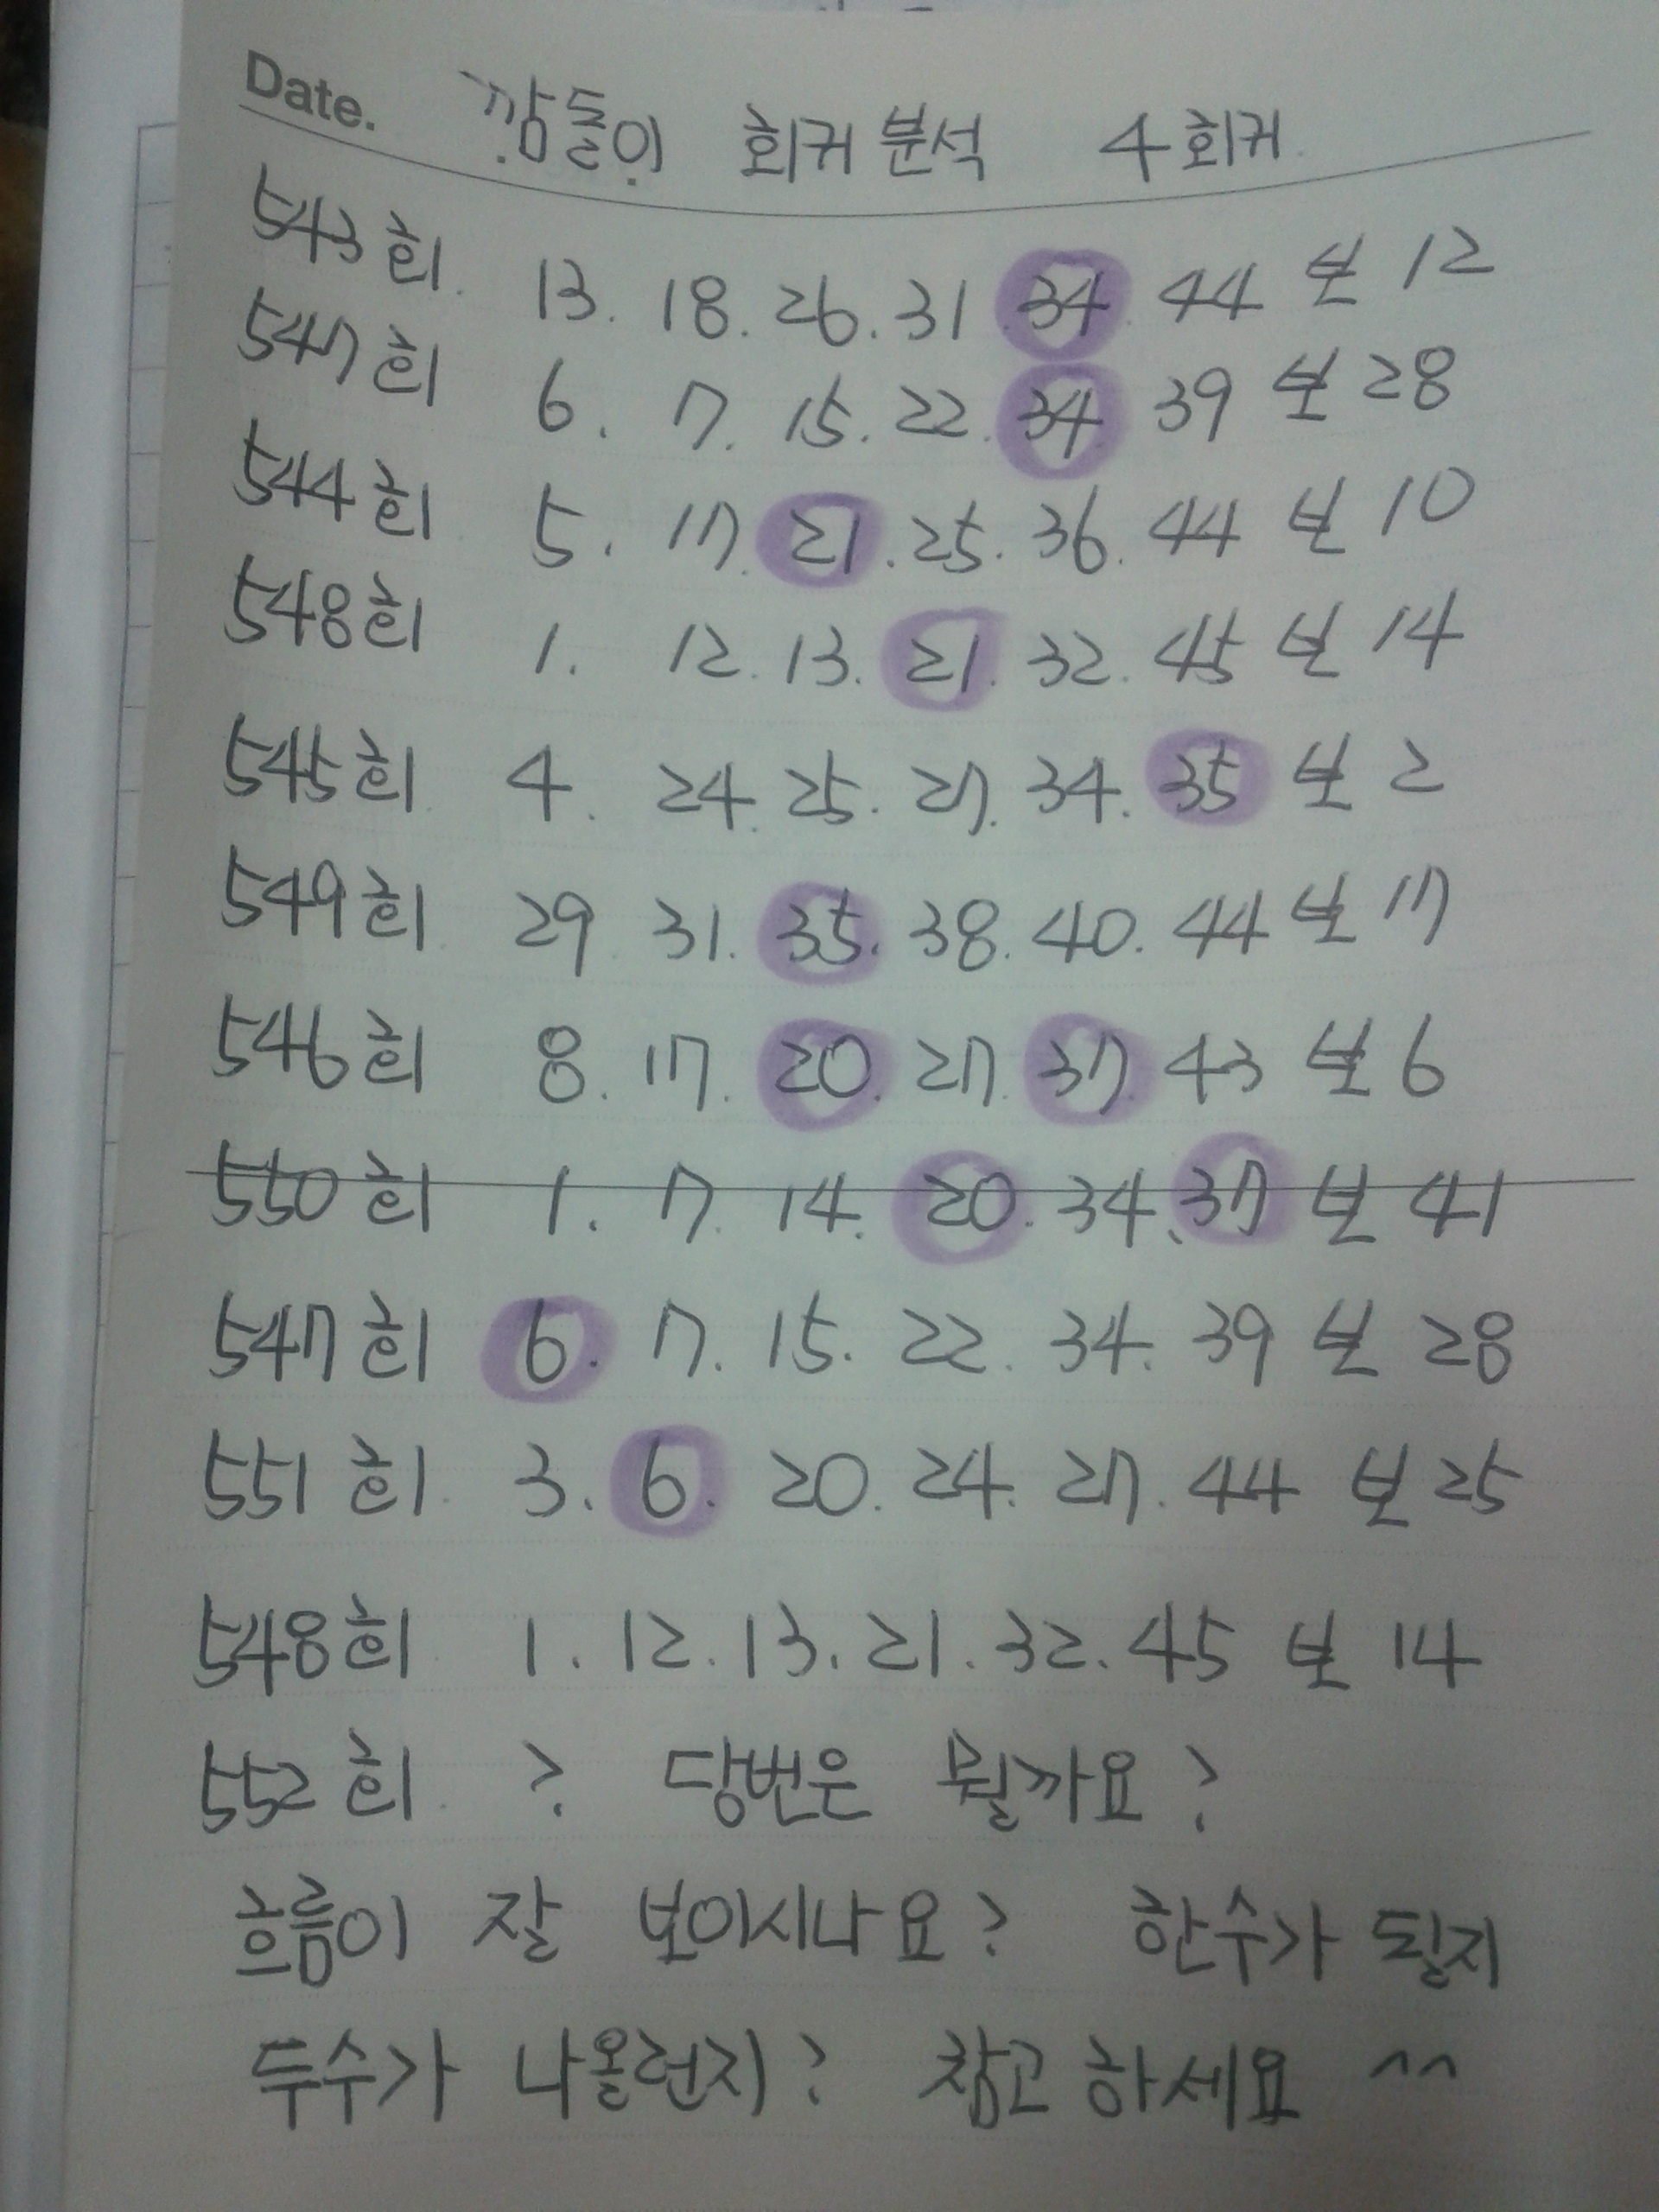 Date. 깜돌이 회귀분석 4회귀
543회 13. 18. 26. 31 34. 44 보 12
547회 6. 7. 15. 22. 34. 39 보 28
544회 5. 17. 21. 25. 36. 44 보 10
548회 1. 12. 13. 21. 32. 45 보 14
545회 4. 24. 25. 27. 34. 35 보 2
549회 29 31. 35. 38. 40. 44 보 17
546회 8. 17. 20. 27. 37. 43 보 6
550회 1. 7. 14. 20. 34. 37 보 41
547회 6. 7. 15. 22. 34. 39 보 28
551회 3. 6. 20. 24. 27. 44 보 25
548회 1. 12. 13. 21. 32. 45 보 14
552회 ? 당번은 뭘까요?
흐름이 잘 보이시나요? 한수가 될지
두수가 나올런지? 참고하세요 ^^